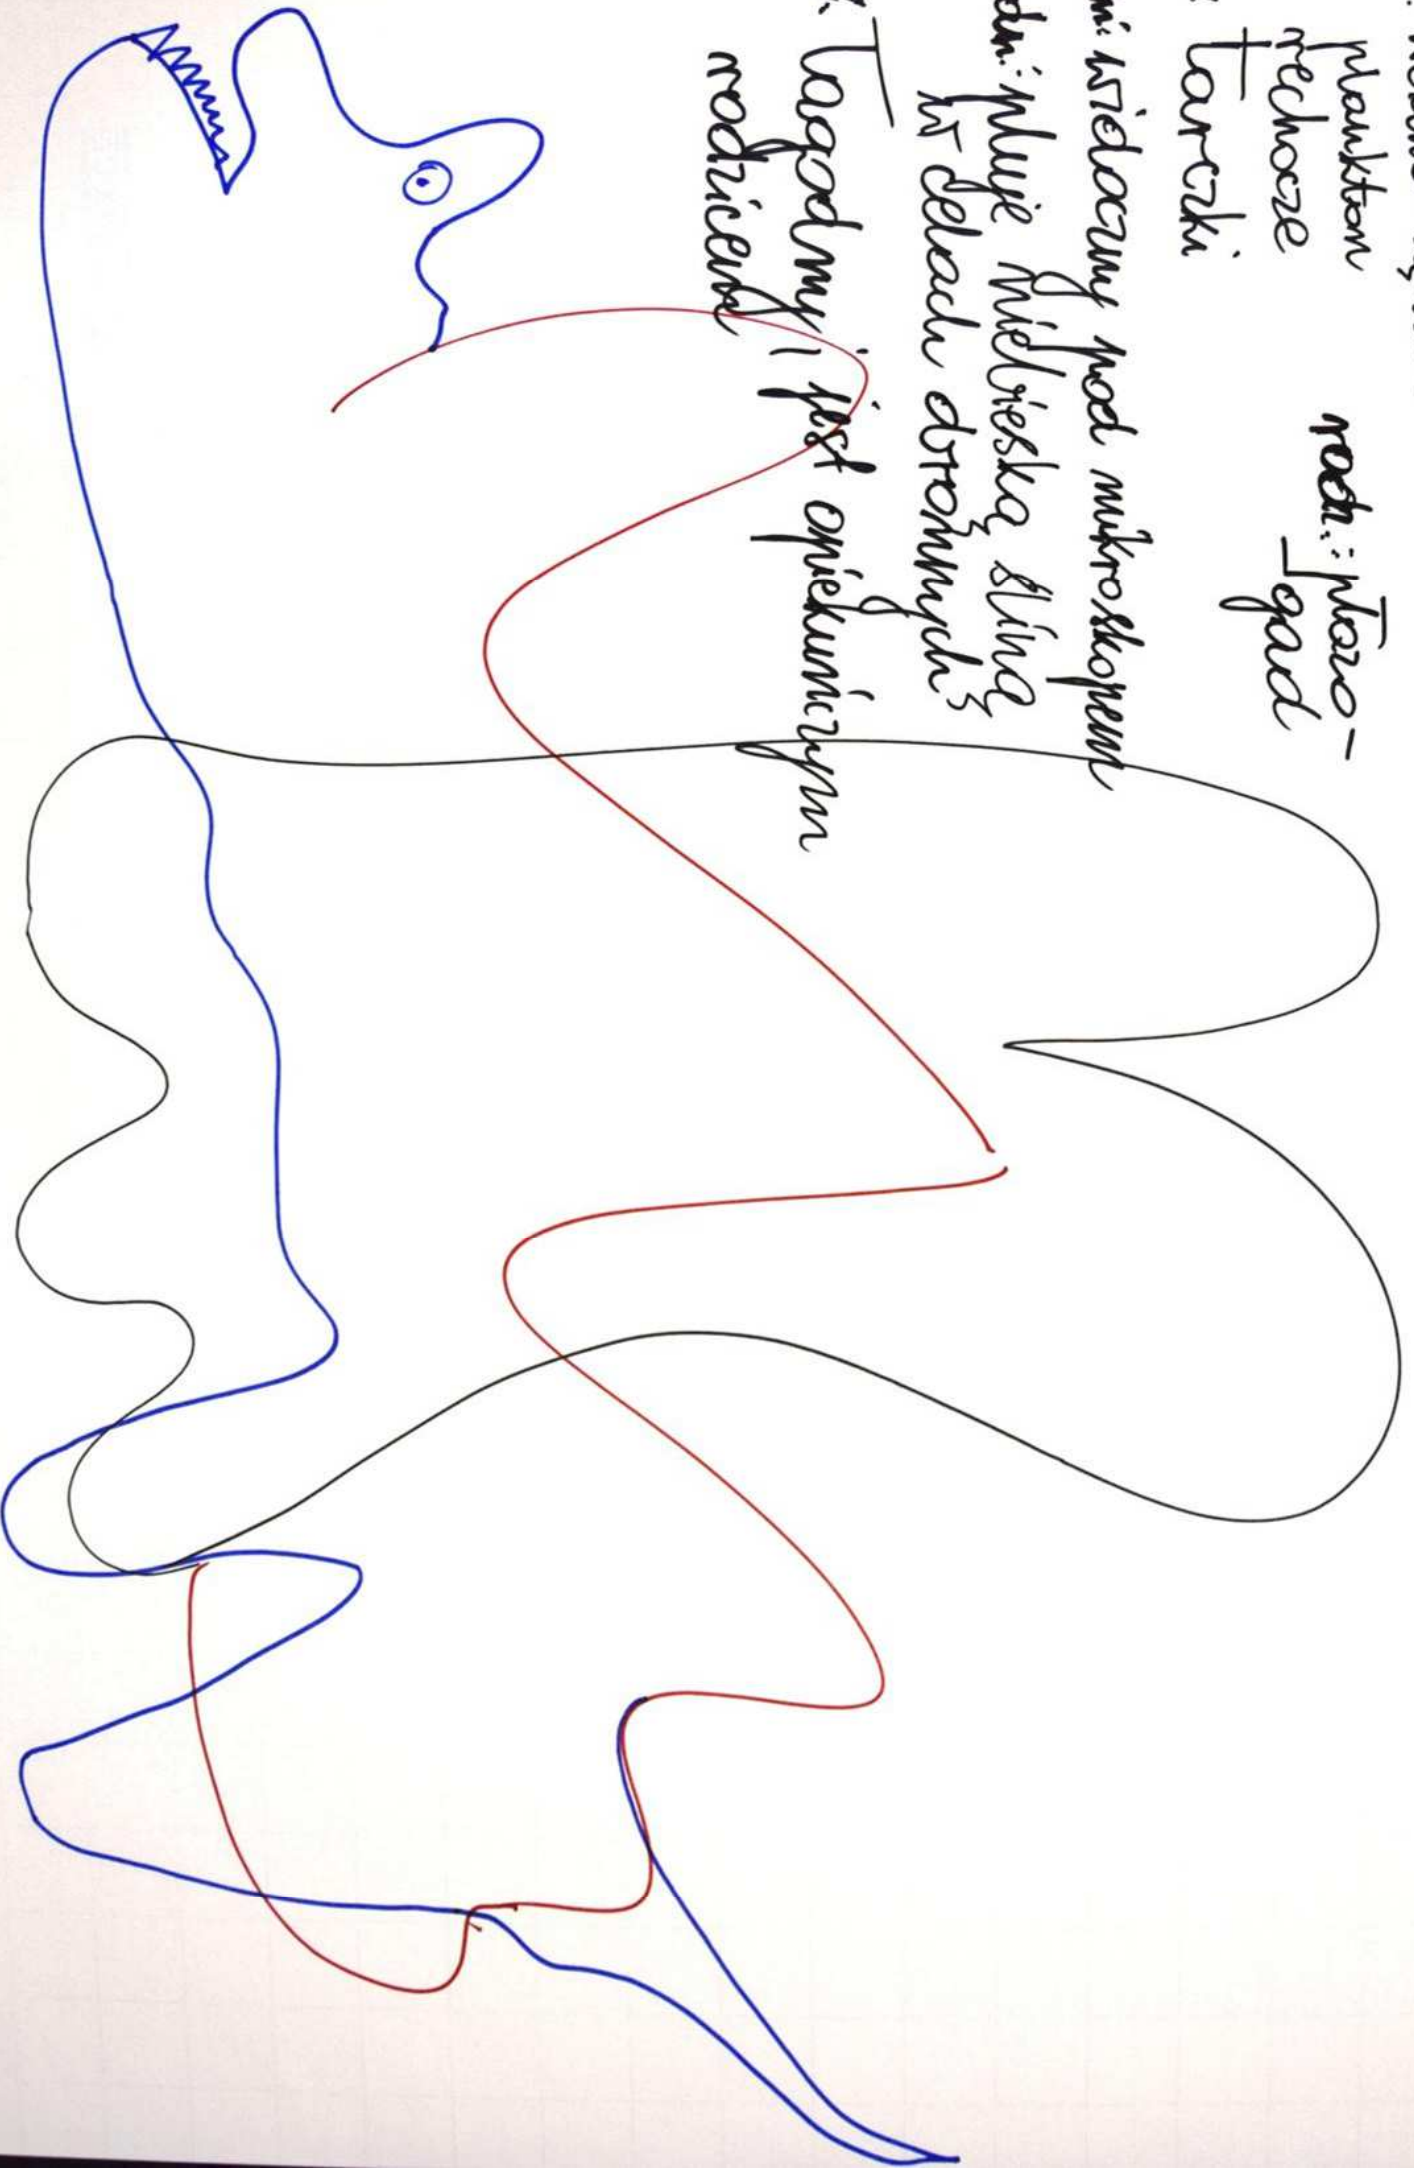 plankton płazo-
rechocze gad
tarczki
widoczny pod mikroskopem
pluje niebieską śliną
w celach obronnych
Łagodny i jest opiekuńczym
rodzicem